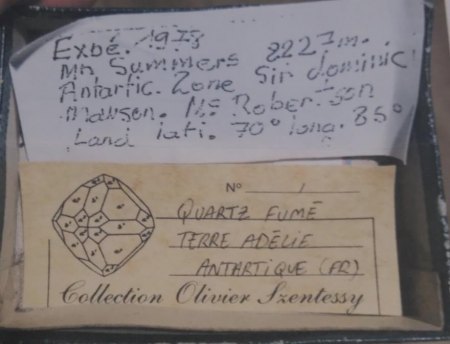 Expé. 1973 2227m.
Mn Summers Sir dominic
Antartic. Zone
mawsen. Mc. Robertson
Land lati. 70° long. 65°
N° /
QUARTZ FUMÉ
TERRE ADÉLIE
ANTARTIQUE (FR)
Collection Olivier Szentessy